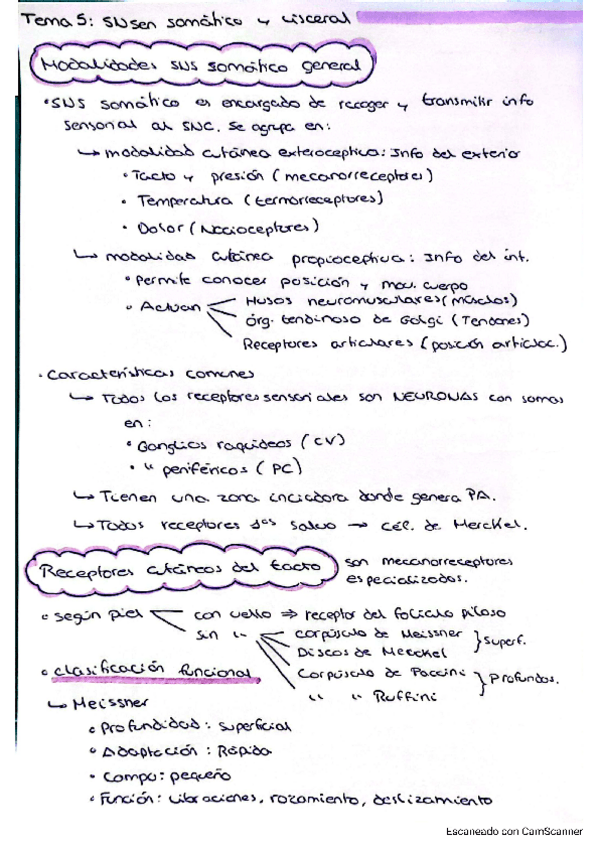 Tema 5: SNSen somático y visceral
Modalidades SNS somático general
• SNS somático es encargado de recoger y transmitir info
sensorial al SNC. Se agrupa en:
↳ modalidad cutánea exteroceptiva: Info del exterior
• Tacto y presión (mecanorreceptores)
• Temperatura (termorreceptores)
• Dolor (Nocioceptores)
↳ modalidad cutánea propioceptiva: Info del int.
• Permite conocer posición y mov. cuerpo
• Actúan
Husos neuromusculares (músculos)
órg. tendinoso de Golgi (Tendones)
Receptores articulares (posición articulac.)
• Características comunes
↳ Todos los receptores sensoriales son NEURONAS con somas
en:
• Ganglios raquídeos (CV)
• " periféricos (PC)
↳ Tienen una zona iniciadora donde genera PA.
↳ Todos receptores 1ºs salvo → cél. de Merckel.
Receptores cutáneos del tacto
son mecanorreceptores
especializados.
• según piel
con vello ⇒ receptor del folículo piloso
sin "
corpúsculo de Meissner
Discos de Merckel
} superf.
• clasificación funcional
Corpúsculo de Paccini
" " Ruffini
} Profundos.
↳ Meissner
• Profundidad: superficial
• Adaptación: Rápida
• Campo: pequeño
• Función: vibraciones, rozamiento, deslizamiento
Escaneado con CamScanner